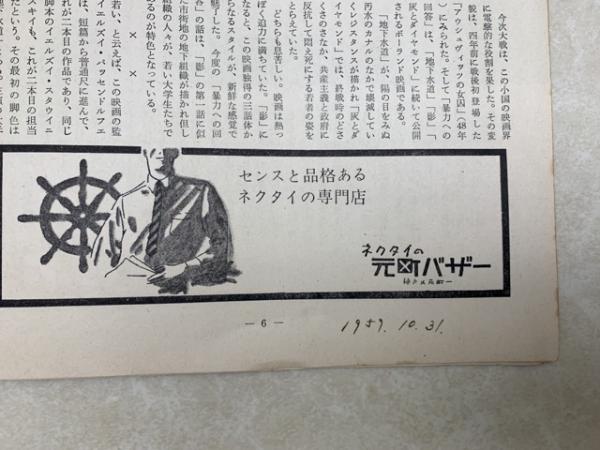 今次大戦は、この小国の映画界
に電撃的な役割を果した。その変
貌は、四年前に戦後初登場した
「アウシュヴィッツの女囚」(48年
)にみられた。そして「暴力への
回答」は、「地下水道」「影」「
灰とダイヤモンド」に続いて公開
されるポーランド映画である。
「地下水道」が、陽の目をみぬ
汚水のカナルのなかで壊滅してい
くレジスタンスが描かれ「灰とダ
イヤモンド」では、終戦時のどさ
くさのさなか、共産主義と政府に
反抗して悶え死にする若者の姿を
とらえていた。
どちらも息苦しい。映画は熱っ
ぽく迫力に満ちていた。「影」に
なると、この映画独得の三話体か
らなるスタイルが、新鮮な感覚で
魅了した。今度の「暴力への回
答」の話は、「影」の第一話に似
た市街地の地下組織が描かれ但し
組織の人々が、若い大学生たちで
あるのが特色となっている。
× × ×
若い、と云えば、この映画の監
イエルズイ・パッセンドルフェ
は、短篇から普通尺に進んで、
れが二本目の作品であり、同じ
脚本のイエルズイ・スタウイニ
スキイも、これが二本目の担当
だという。その最初の脚色は
センスと品格ある
ネクタイの専門店
ネクタイの
元町バザー
— 6 —
1959. 10. 31.